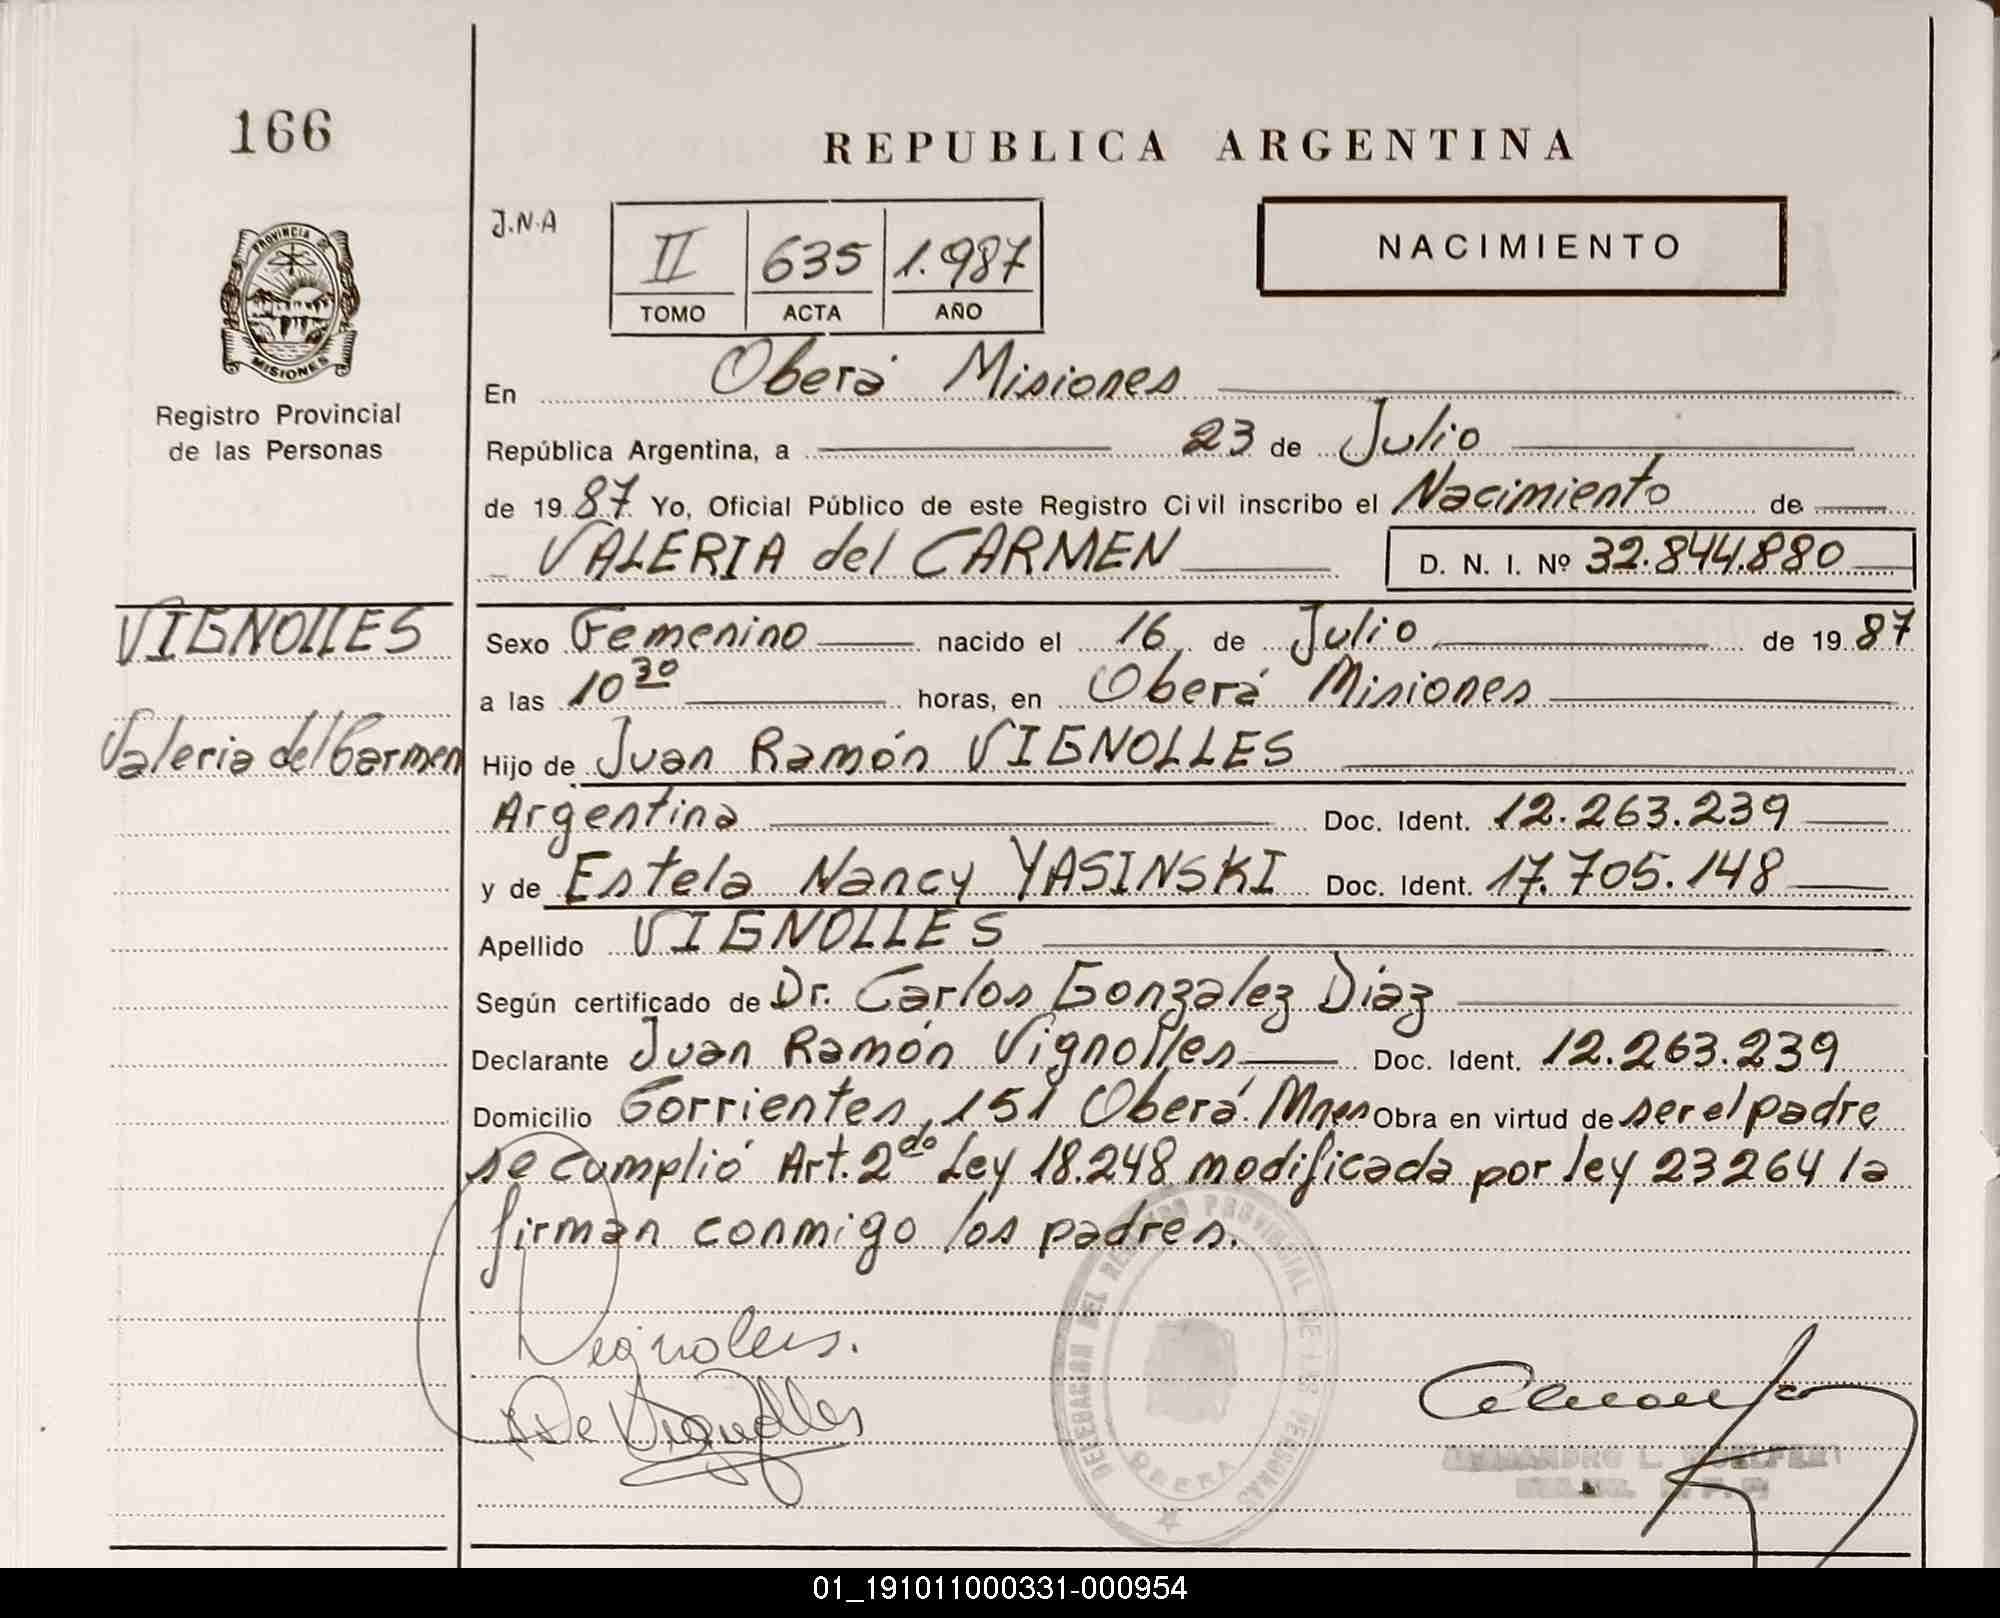 166
REPUBLICA ARGENTINA
J.N.A
II 635 1.987
TOMO ACTA AÑO
NACIMIENTO
PROVINCIA DE
MISIONES
Registro Provincial
de las Personas
En Oberá Misiones
República Argentina, a 23 de Julio
de 1987 Yo, Oficial Público de este Registro Civil inscribo el Nacimiento de
VALERIA del CARMEN D. N. I. Nº 32.844.880
VIGNOLLES
Valeria del Carmen
Sexo Femenino nacido el 16 de Julio de 1987
a las 10 30 horas, en Oberá Misiones
Hijo de Juan Ramón VIGNOLLES
Argentina Doc. Ident. 12.263.239
y de Estela Nancy YASINSKI Doc. Ident. 17.705.148
Apellido VIGNOLLES
Según certificado de Dr. Carlos Gonzalez Diaz
Declarante Juan Ramón Vignolles Doc. Ident. 12.263.239
Domicilio Corrientes 151 Oberá Mnes Obra en virtud de ser el padre
se cumplió Art. 2do Ley 18.248 modificada por ley 23264 la
firman conmigo los padres.
Vignolles.
De Vignolles
DELEGACION DEL REGISTRO PROVINCIAL DE LAS PERSONAS
OBERA
01_191011000331-000954